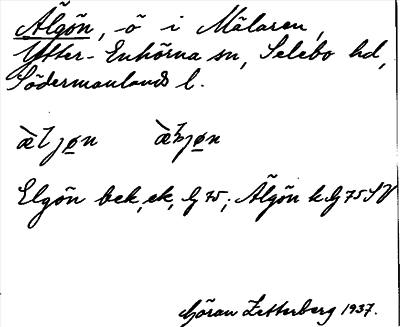 Älgön, ö i Mälaren,
Ytter-Enhörna sn, Selebo hd,
Södermanlands l.
Elgön bek, ek, G 75; Älgön k G 75 SV
Göran Zetterberg 1937.